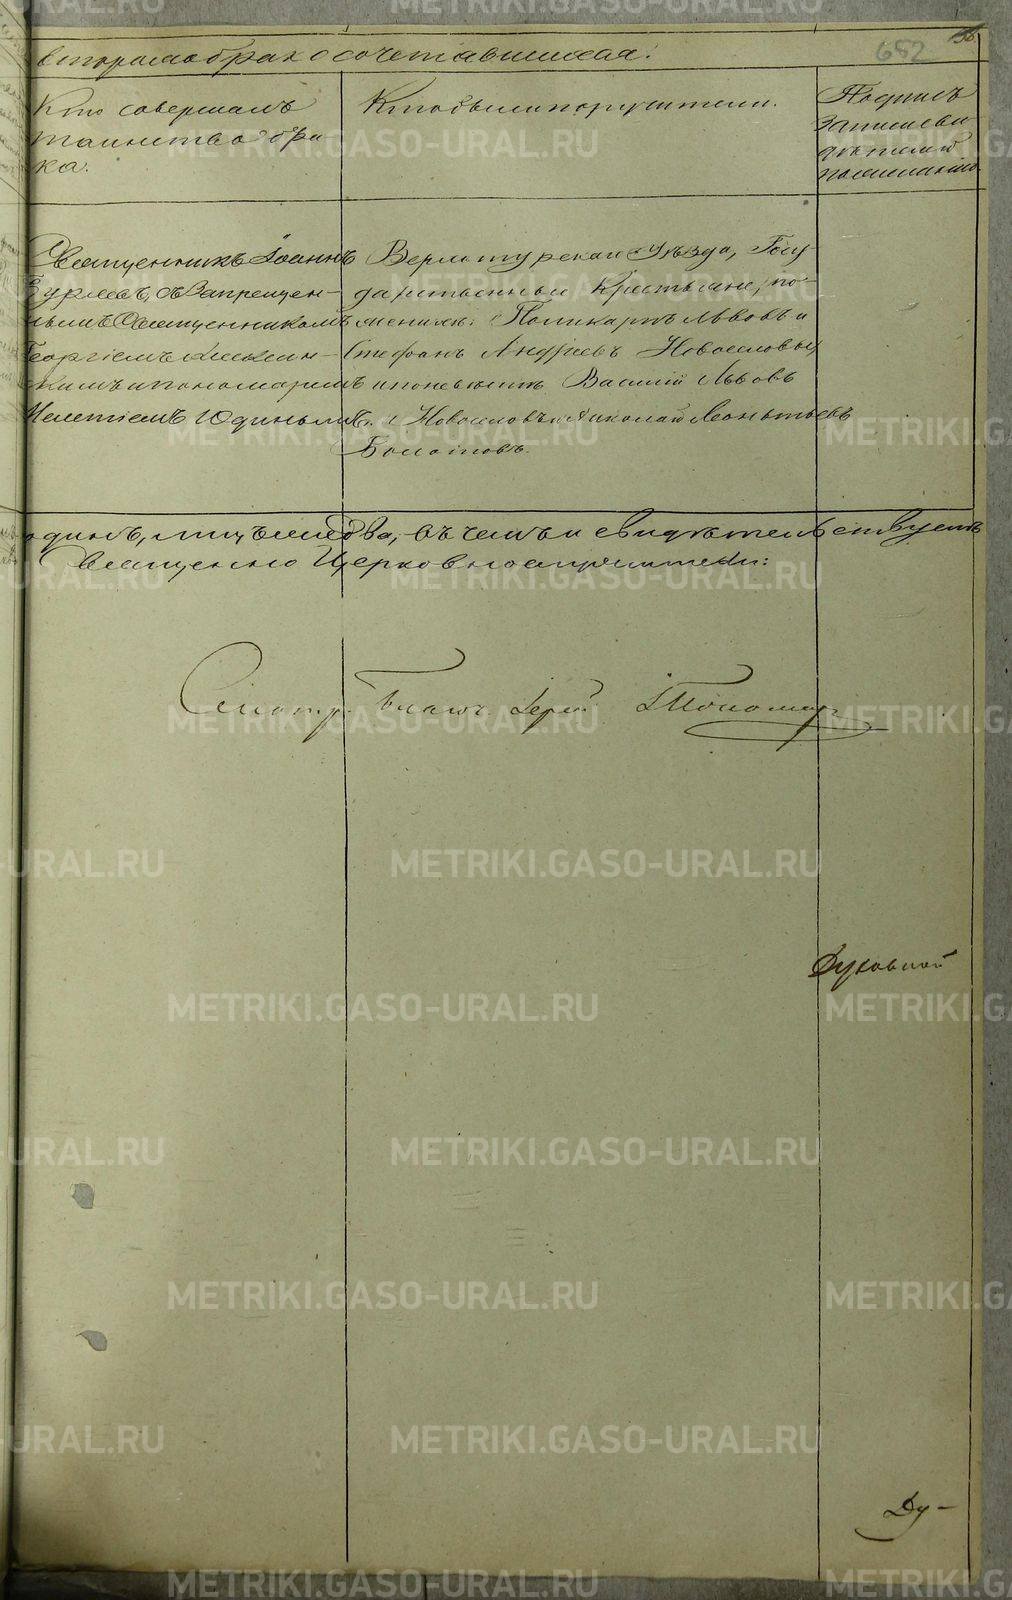 652
второмъ бракосочетавшихся.
Кто совершалъ
таинство бра
ка.
Кто были поручители.
Подпись
записеви
дѣтелей
по желанію.
Священникъ Іоаннъ
съ Запрещен-
нымъ Священникомъ
Георгіемъ
и пономаремъ
Мелетіемъ Юдинымъ.
Верхотурскаго Уѣзда, Госу-
дарственные Крестьяне, по-
женихѣ: Поликарпъ Львовъ и
Стефанъ Андреевъ Новоселовы,
и по невѣстѣ Василій Львовъ
Новоселовъ и Николай Леонтьевъ
Болотовъ.
одинъ, лицъ два, въ чемъ и свидѣтельствуемъ
Священно Церковнослужители:
Смотр. Благоч. Іерей І. Пономар
Духовной
Ду-
METRIKI.GASO-URAL.RU